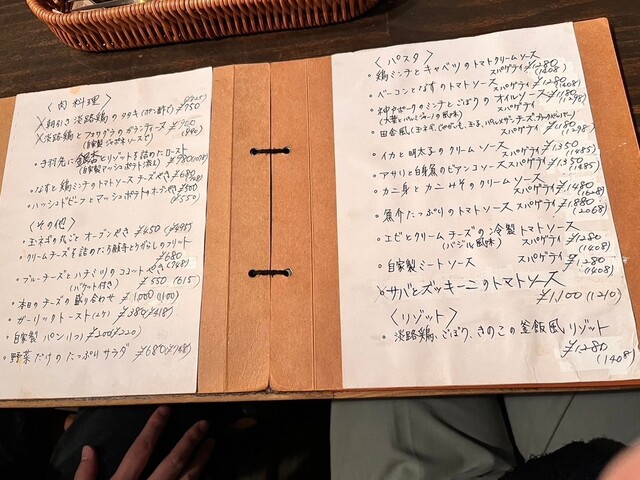 〈肉料理〉
(825)
朝引き淡路鶏のタタキ ¥750
淡路鶏とフォアグラのガランティーヌ
(自家製ジャポネソース) (840)
・手羽先に銀杏とリゾットを詰めたロースト
(自家製マッシュポテト添え)
・なすと鶏ミンチのトマトソースチーズやき ¥680
(748)
・ハッシュドビーフとマッシュポテトのオーブンやき ¥500
(¥550)
〈その他〉
・玉ネギの丸ごとオーブンやき ¥450 (¥495)
・クリームチーズを詰めた
とうがらしのフリット
¥680
(748)
・ブルーチーズとハチミツのココットやき
(バケット付き) ¥550 (615)
・本日のチーズの盛り合わせ ¥1,000 (1100)
・ガーリックトースト(2ケ) ¥380 (¥418)
・自家製パン(1つ) ¥200 (¥220)
・野菜だけのたっぷりサラダ ¥680 (¥748)
〈パスタ〉
・鶏ミンチとキャベツのトマトクリームソース
スパゲティ ¥1280
(1408)
・ベーコンとなすのトマトソース
スパゲティ ¥1280
(1408)
・神戸ポークのミンチとごぼうのオイルソース
(大葉とパルミジャーノの風味) スパゲティ ¥1180
(1298)
・田舎風
スパゲティ ¥1180
(1298)
・イカと明太子のクリームソース
スパゲティ ¥1350
(1485)
・アサリと白身魚のビアンコソース
スパゲティ ¥1350
(1485)
・カニ身とカニみそのクリームソース
スパゲティ ¥1480
(1628)
・魚介たっぷりのトマトソース
スパゲティ ¥1880
(2068)
・エビとクリームチーズの冷製トマトソース
(バジル風味) スパゲティ ¥1280
(1408)
・自家製ミートソース スパゲティ ¥1280
(1408)
・サバとズッキーニのトマトソース
¥1,100 (1210)
〈リゾット〉
・淡路鶏、ごぼう、きのこの釜飯風リゾット
¥1280
(1408)